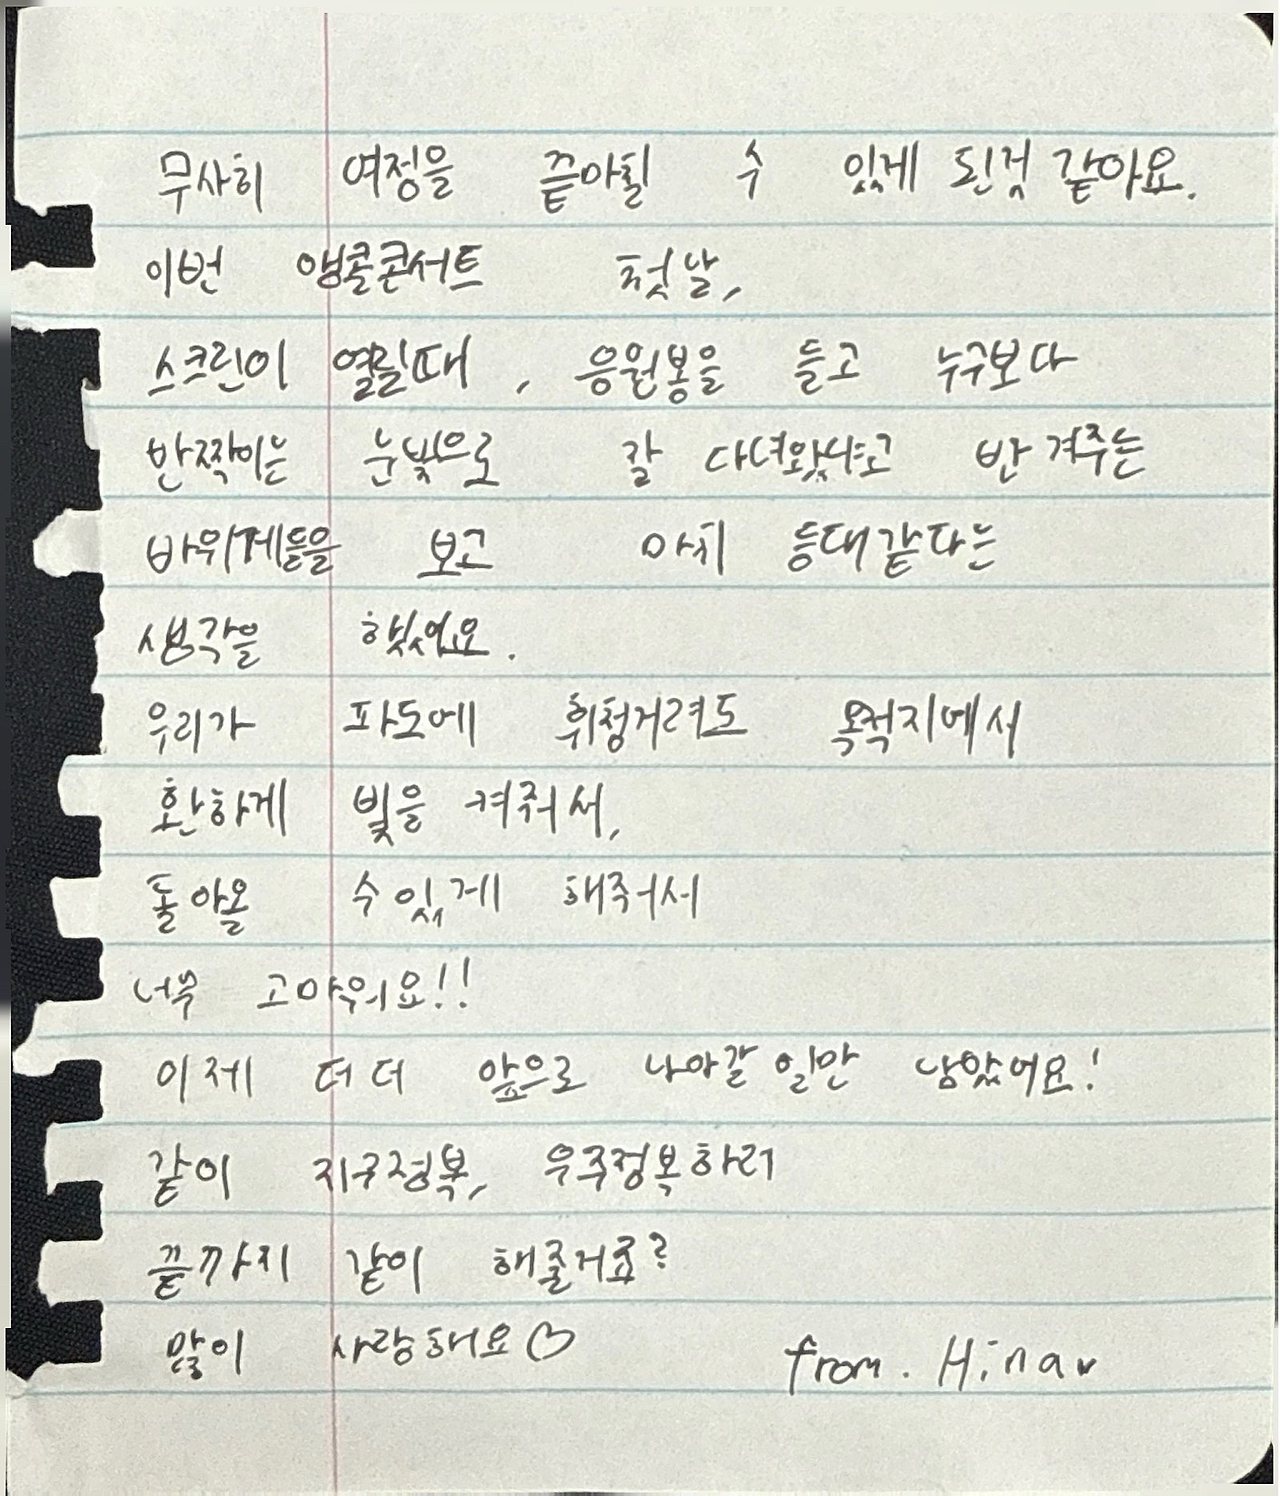 무사히 여정을 끝마칠 수 있게 된것 같아요.
이번 앵콜콘서트 첫날,
스크린이 열릴때, 응원봉을 들고 누구보다
반짝이는 눈빛으로 잘 다녀왔냐고 반겨주는
바위게들을 보고 마치 등대같다는
생각을 했었어요.
우리가 파도에 휘청거려도 목적지에서
환하게 빛을 켜줘서,
돌아올 수있게 해줘서
너무 고마워요!!
이제 더더 앞으로 나아갈 일만 남았어요!
같이 지구정복, 우주정복하러
끝까지 같이 해줄거죠?
많이 사랑해요♡ from. Hina